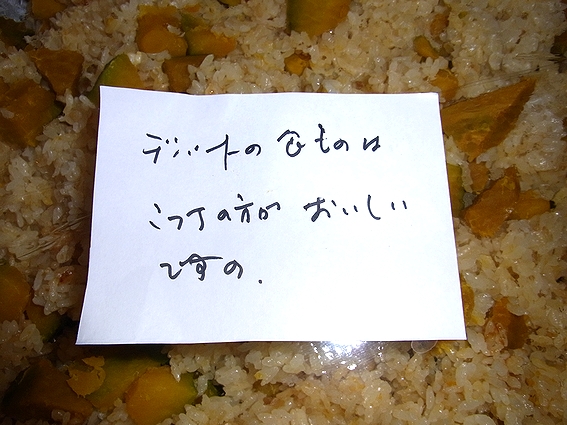 デパートの食ものは
こっちの方が おいしい
ですの.